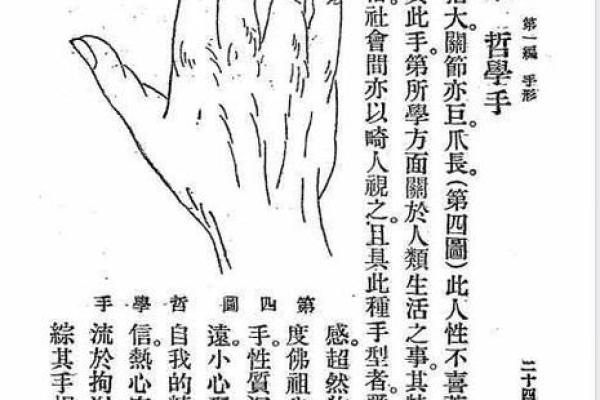 第一編 手形
二十四
哲學手
指大。關節亦巨。爪長。(第四圖)此人性不喜華
此手。第所學方面。關於人類生活之事。其特
社會間亦以畸人視之。且具此種手型者。愛
第四圖 哲學手
感超然物
度佛祖
手。性質沉
遠小心
自我的
信熱心
流於拘
綜其手相